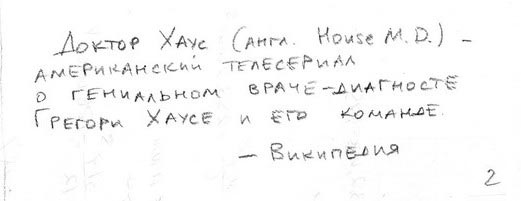 Доктор Хаус (англ. House M.D.) –
американский телесериал
о гениальном враче-диагносте
Грегори Хаусе и его команде.
– Википедия
2